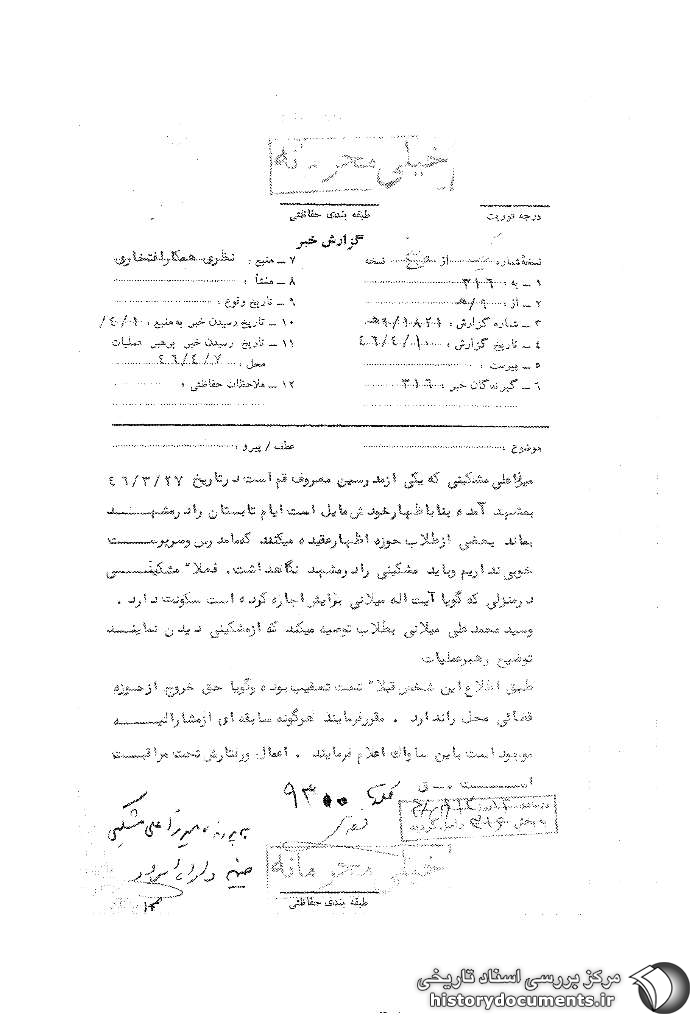 خیلی محرمانه
درجه فوریت
طبقه بندی حفاظتی
گزارش خبر
نسخه شماره از نسخه
۱ ـ به : ۳۱۶
۲ ـ از : ۹/ه‍
۳ ـ شماره گزارش :
۴ ـ تاریخ گزارش : ۴۶/۴/۱۰
۵ ـ پیوست :
۶ ـ گیرندگان خبر : ۳۱۶
۷ ـ منبع : نظری همکار افتخاری
۸ ـ منشأ :
۹ ـ تاریخ وقوع :
۱۰ ـ تاریخ رسیدن خبر به منبع :
۱۱ ـ تاریخ رسیدن خبر برهبر عملیات
محل : ۴۶/۴/۷
۱۲ ـ ملاحظات حفاظتی :
موضوع :
عطف / پیرو :
میرزاعلی مشکینی که یکی ازمدرسین معروف قم است درتاریخ ۴۶/۳/۲۷
بمشهد آمده بنابا ظهارخودش مایل است ایام تابستان رادرمشهد
بماند بعضی ازطلاب حوزه اظهارعقیده میکنند که مامدرس وسرپرست
خوبی نداریم وباید مشکینی رادرمشهد نگاهداشت. فعلا" مشکینی
درمنزلی که گویا آیت اله میلانی برایش اجاره کرده است سکونت دارد .
وسید محمدعلی میلانی بطلاب توصیه میکند که ازمشکینی دیدن نمایند
توضیح رهبرعملیات
طبق اطلاع این شخص قبلا" تحت تعقیب بوده وگویا حق خروج ازحوزه
قضائی محل راندارد . مقررفرمایند هرگونه سابقه ای ازمشارالیه
موجود است باین ساواک اعلام فرمایند . اعمال ورفتارش تحت مراقبت
است . ق
۹۳۰۰
به پرونده میرزا علی مشکینی
به بخش ۳۱۶ واصل گردید
خیلی محرمانه
طبقه بندی حفاظتی
مرکز بررسی اسناد تاریخی
historydocuments.ir